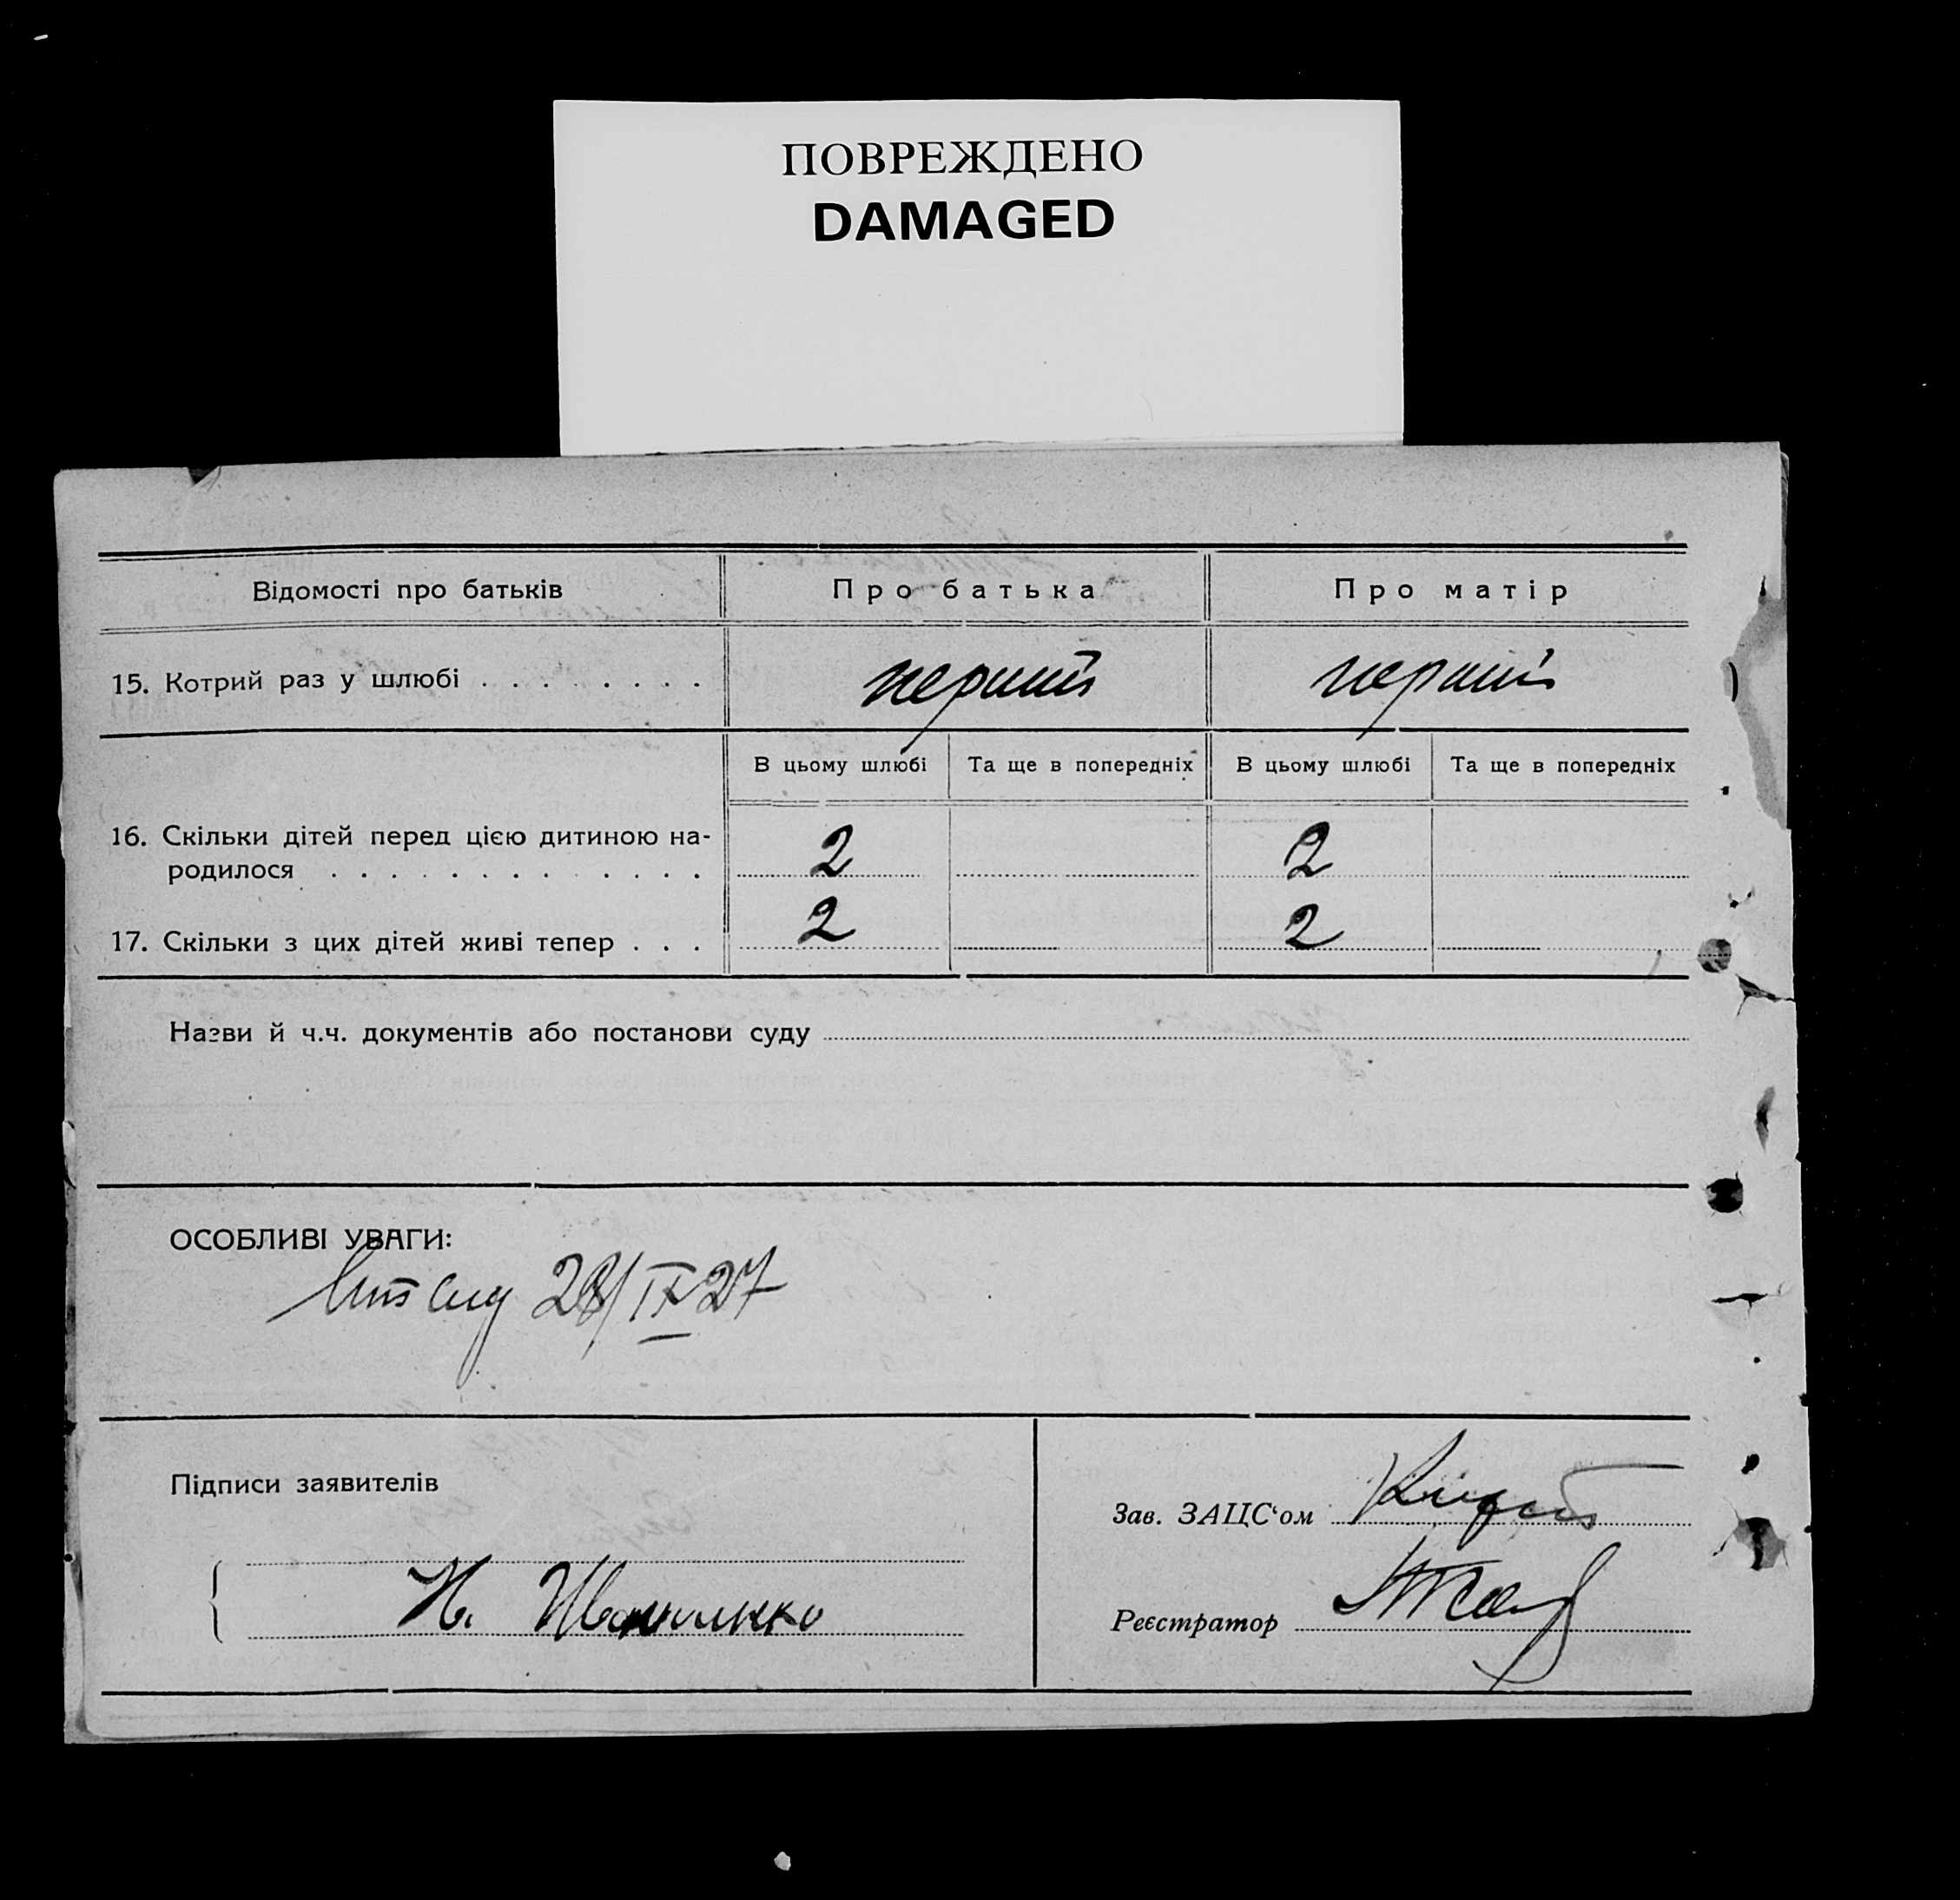 ПОВРЕЖДЕНО
DAMAGED
Відомості про батьків
Про батька
Про матір
15. Котрий раз у шлюбі . . . . . . . .
перший
перший
В цьому шлюбі
Та ще в попередніх
В цьому шлюбі
Та ще в попередніх
16. Скільки дітей перед цією дитиною на-
родилося . . . . . . . . . . . . .
2
2
17. Скільки з цих дітей живі тепер . . .
2
2
Назви й ч.ч. документів або постанови суду
ОСОБЛИВІ УВАГИ:
28/IX 27
Підписи заявителів
Зав. ЗАЦС‘ом
Реєстратор